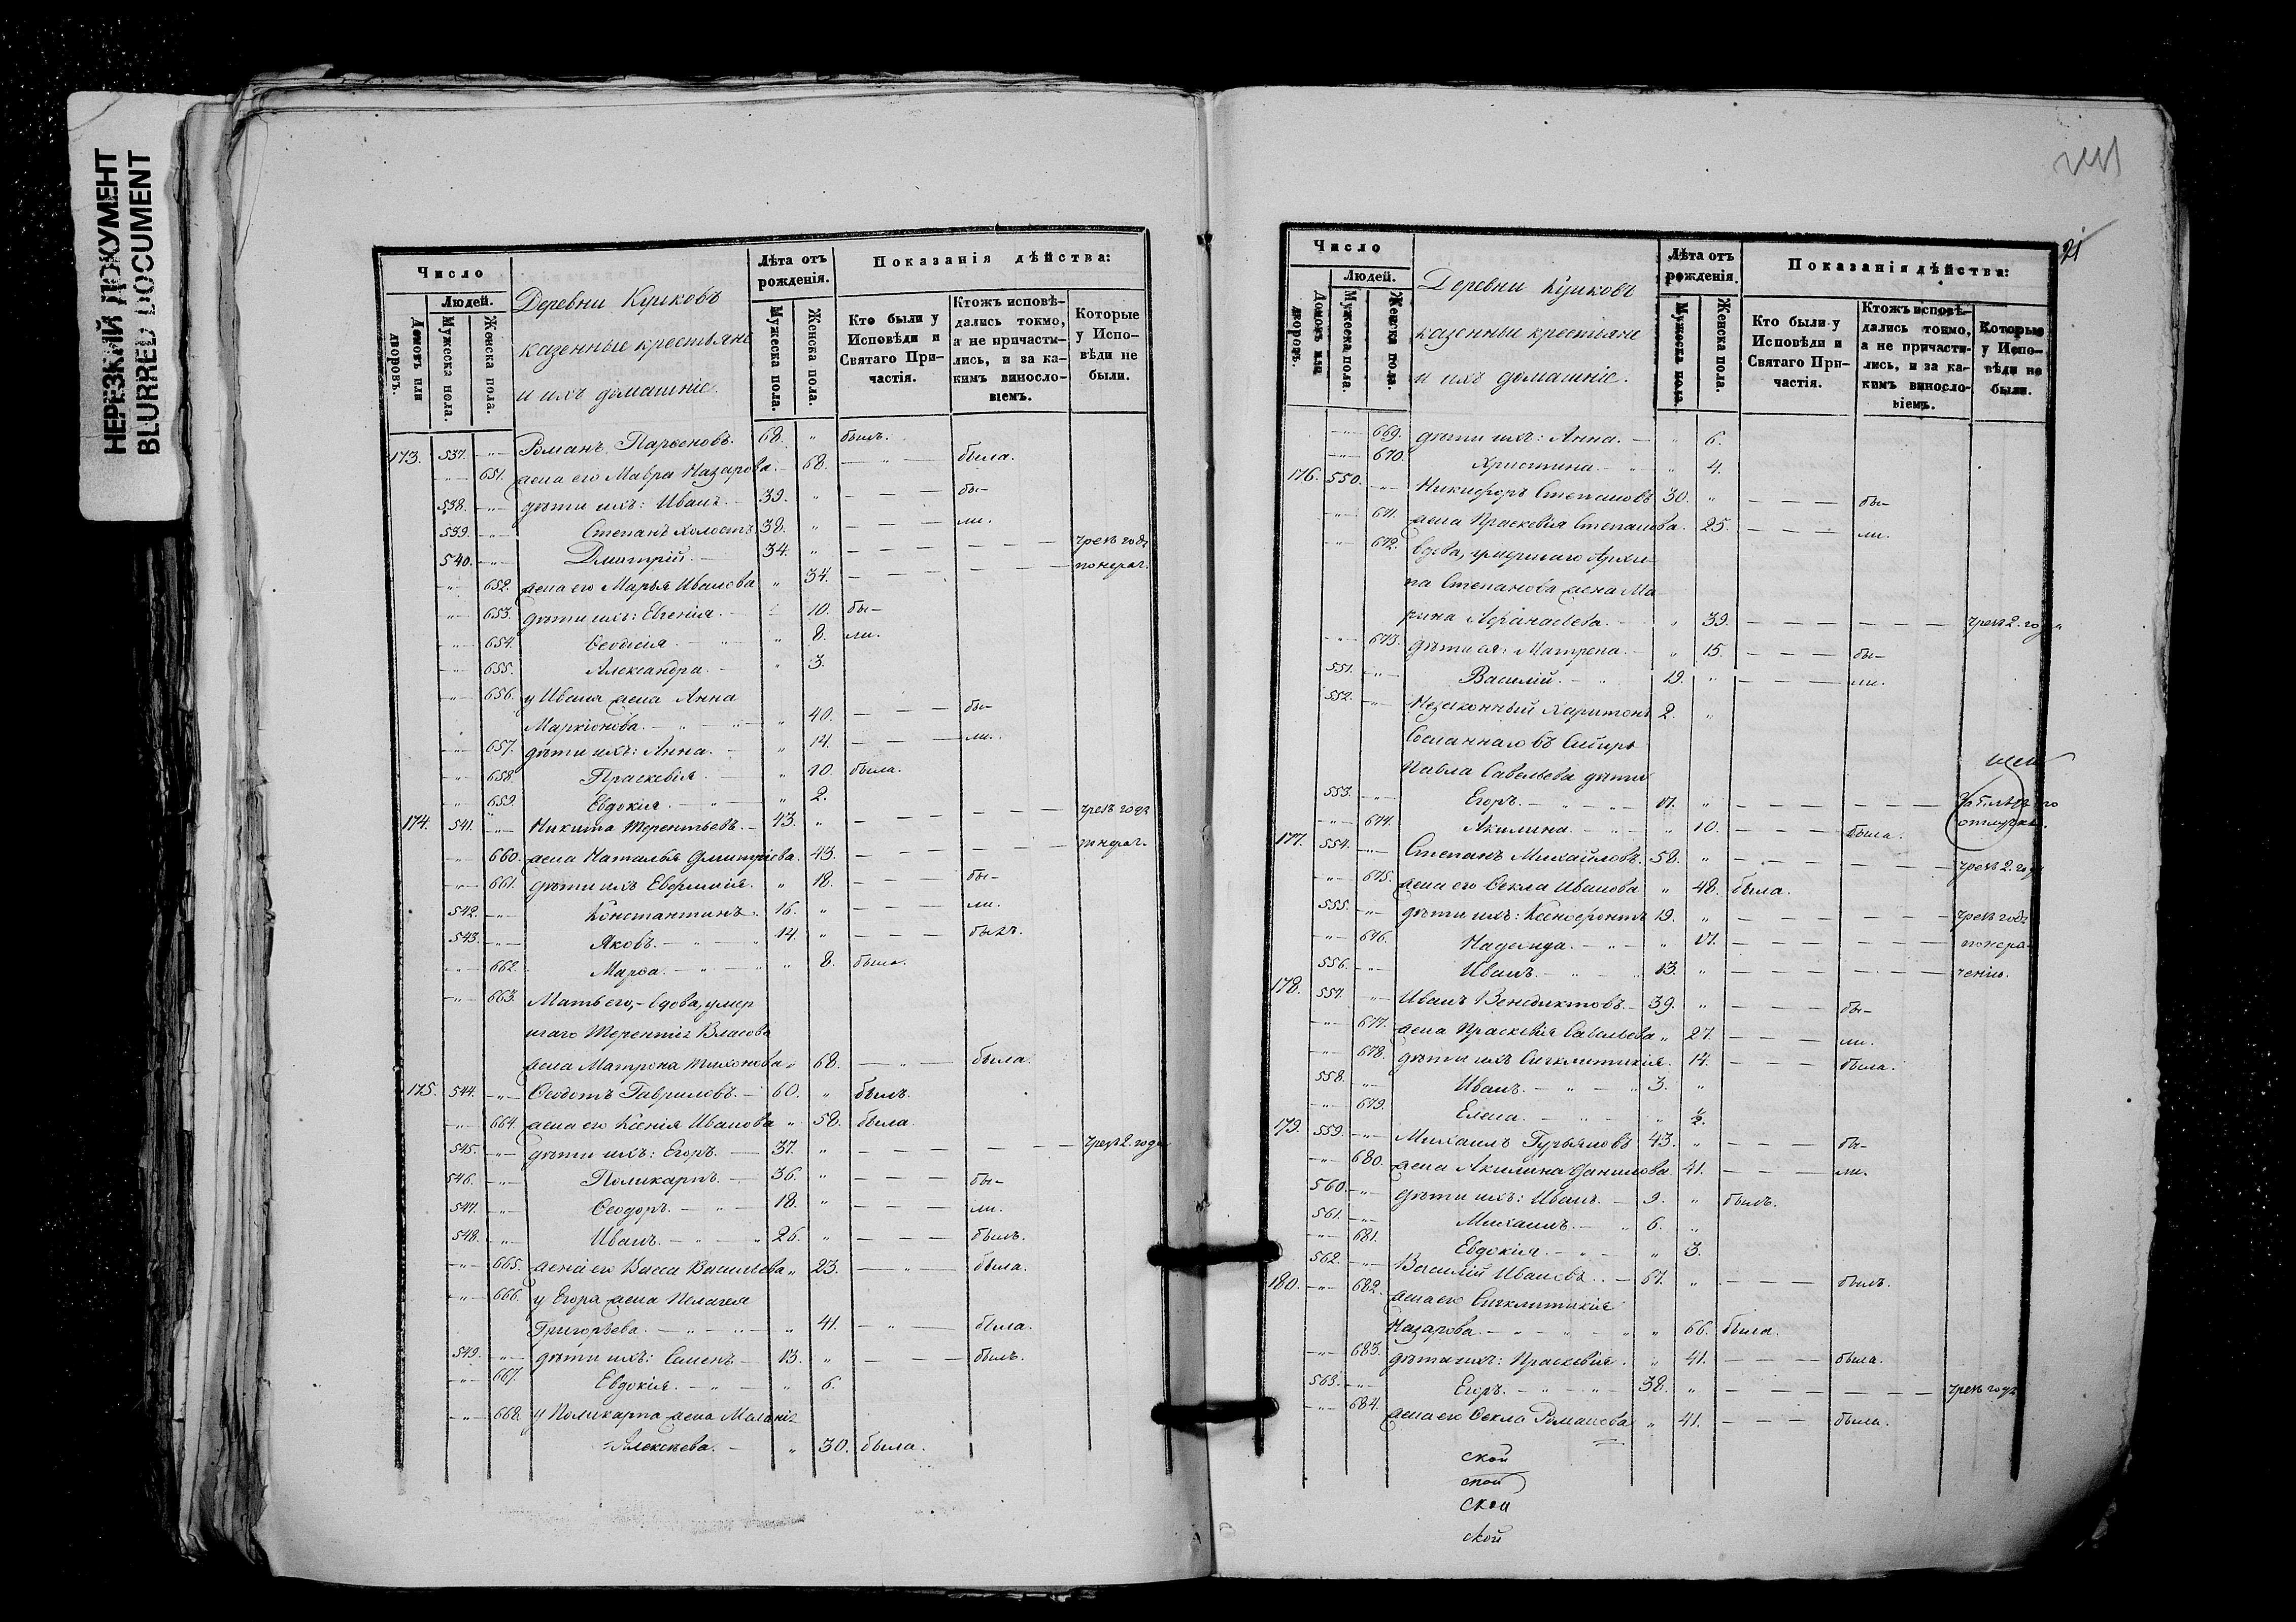 НЕРЕЗКИЙ ДОКУМЕНТ
BLURRED DOCUMENT
Число
Людей.
Домовъ или дворовъ.
Мужеска пола.
Женска пола.
Деревни Кушковъ
казенные крестьяне
и ихъ домашніе.
Лѣта отъ рожденія.
Мужеска пола.
Женска пола.
Показанія дѣйства:
Кто были у Исповѣди и Святаго Причастія.
Ктожъ исповѣдались токмо, а не причастились, и за какимъ винословіемъ.
Которые у Исповѣди не были.
173. 537. -"- Романъ Парѳеновъ. 68. " былъ.
-"- 651. жена его Мавра Назарова. 68. — " — была.
538. -"- дѣти ихъ: Иванъ. 39. " — — — бы-
539. -"- Степанъ холостъ 38. " — — — ли.
540. -"- Дмитрій. 34. " — — — — — — чрезъ годъ
-"- 652. жена его Марья Иванова " 34. — — — — — — по нерач.
-"- 653. дѣти ихъ: Евгенія. 10. бы-
-"- 654. Ѳеодосія. " 8. ли.
-"- 655. Александра. " 3.
-"- 656. у Ивана жена Анна
Маркіонова. " 40. — — — бы-
-"- 657. дѣти ихъ: Анна. " 14. — — — ли.
-"- 658. Праскевія. " 10. была.
-"- 659. Евдокія. " 2.
174. 541. -"- Никита Терентьевъ. 43. " — — — — — — чрезъ годъ
-"- 660. жена Наталья Дмитріева. 43. — — — — — — по нерач.
-"- 661. дѣти ихъ Евфимія. " 18. — — — бы-
542. -"- Константинъ. 16. " — — — ли.
543. -"- Яковъ. 14. " — — — былъ.
-"- 662. Марѳа. " 8. была.
-"- 663. Мать его, - вдова, умер
шаго Терентія Власова
жена Матрона Тихонова " 68. — " — была.
175. 544. -"- Ѳеодотъ Гавриловъ. 60. " былъ.
-"- 664. жена его Ксенія Иванова " 58. была
545. -"- дѣти ихъ: Егоръ. 37. " — — — — — — чрезъ 2. года
546. -"- Поликарпъ. 36. " — — — бы-
547. -"- Ѳеодоръ. 18. " — — — ли.
548. -"- Иванъ. 26. " — — — былъ.
-"- 665. жена его Васса Васильева " 23. — " — была.
-"- 666. у Егора жена Пелагея
Григорьева. " 41. — " — была.
549. -"- дѣти ихъ: Семенъ 13. " — — — былъ.
-"- 667. Евдокія. " 6.
-"- 668. у Поликарпа жена Меланія
Алексѣева. " 30. была.
21
Число
Людей.
Домовъ или дворовъ.
Мужеска пола.
Женска пола.
Деревни Кушковъ
казенные крестьяне
и ихъ домашніе.
Лѣта отъ рожденія.
Мужеска пола.
Женска пола.
Показанія дѣйства:
Кто были у Исповѣди и Святаго Причастія.
Ктожъ исповѣдались токмо, а не причастились, и за какимъ винословіемъ.
Которые у Исповѣди не были.
-"- 669. дѣти ихъ: Анна. " 6.
-"- 670. Христина. " 4.
176. 550. -"- Никифоръ Степановъ 30. " — — — бы-
-"- 671. жена Праскевія Степанова. 25. — — — ли.
-"- 672. вдова, умершаго Архи-
па Степанова жена Ма
рина Афанасьева. " 39. — — — — — — чрезъ 2. года
-"- 673. дѣти ея: Матрена. " 15. — — — бы-
551. -"- Василій. 19. " — — — ли.
552. -"- Незаконный Харитонъ 2. "
Сосланнаго въ Сибирь
Павла Савельева дѣти
553. -"- Егоръ. 17. " — — — — — —
отлучк.
-"- 674. Акилина. " 10. — — — была.
177. 554. -"- Степанъ Михайловъ. 58. " — — — — — — чрезъ 2. года
-"- 675. жена его Ѳекла Иванова " 48. была.
555. -"- дѣти ихъ: Ксенофонтъ 19. " — — — — — — чрезъ годъ
-"- 676. Надежда. " 17. — — — — — — по нера-
556. -"- Иванъ. 13. " — — — — — — ченію.
178. 557. -"- Иванъ Венедиктовъ. 39. " — — — бы-
-"- 677. жена Праскевія Савельева " 27. — — — ли.
-"- 678. дѣти ихъ Сигклитикія. 14. — — — была.
558. -"- Иванъ. 3. "
-"- 679. Елена. " ½.
179. 559. -"- Михаилъ Гурьяновъ 43. " — — — бы-
-"- 680. жена Акилина Данилова. 41. — — — ли.
560. -"- дѣти ихъ: Иванъ. 9. " былъ.
561. -"- Михаилъ. 6. "
-"- 681. Евдокія. " 3.
562. -"- Василій Ивановъ. 67. " — — — былъ.
180. -"- 682. жена его Сигклитикія
Назарова. " 66. была.
-"- 683. дѣти ихъ: Праскевія. " 41. — — — была.
563. -"- Егоръ. 38. " — — — — — — чрезъ годъ
-"- 684. жена его Ѳекла Романова " 41. — — — была.
ской
ской
ской
ской